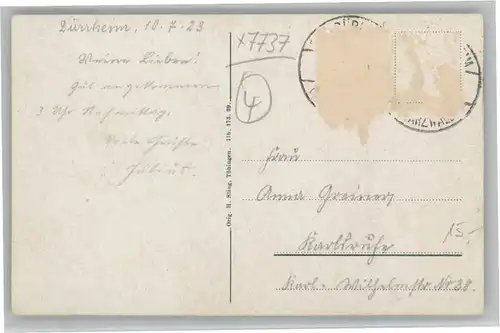 Dürrheim, 10.7.23
Meine Lieben!
Gut angekommen
3 Uhr Nachmittag.
Viele Grüße
x7737
4
Orig. H. Sting, Tübingen. 116 173 99
Frau
Anna Greiner
Karlsruhe
Karl-Wilhelmstr Nr 38.
15,-